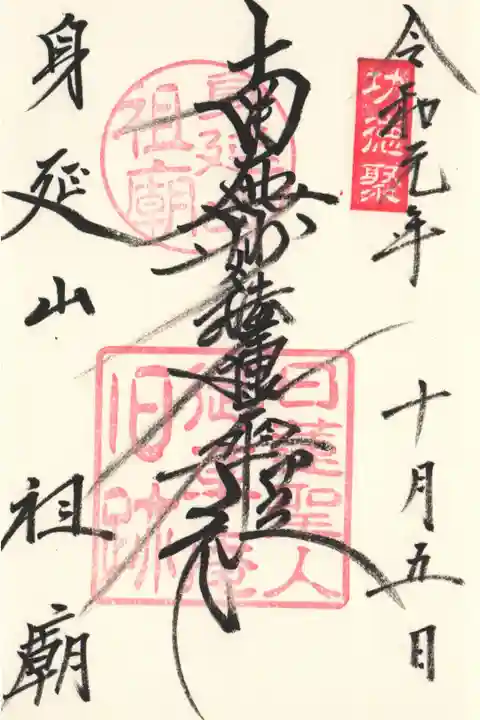 令和元年 十月五日
功徳聚
南無
身延山
祖廟
日蓮聖人
御草庵
旧跡
身延山 祖廟